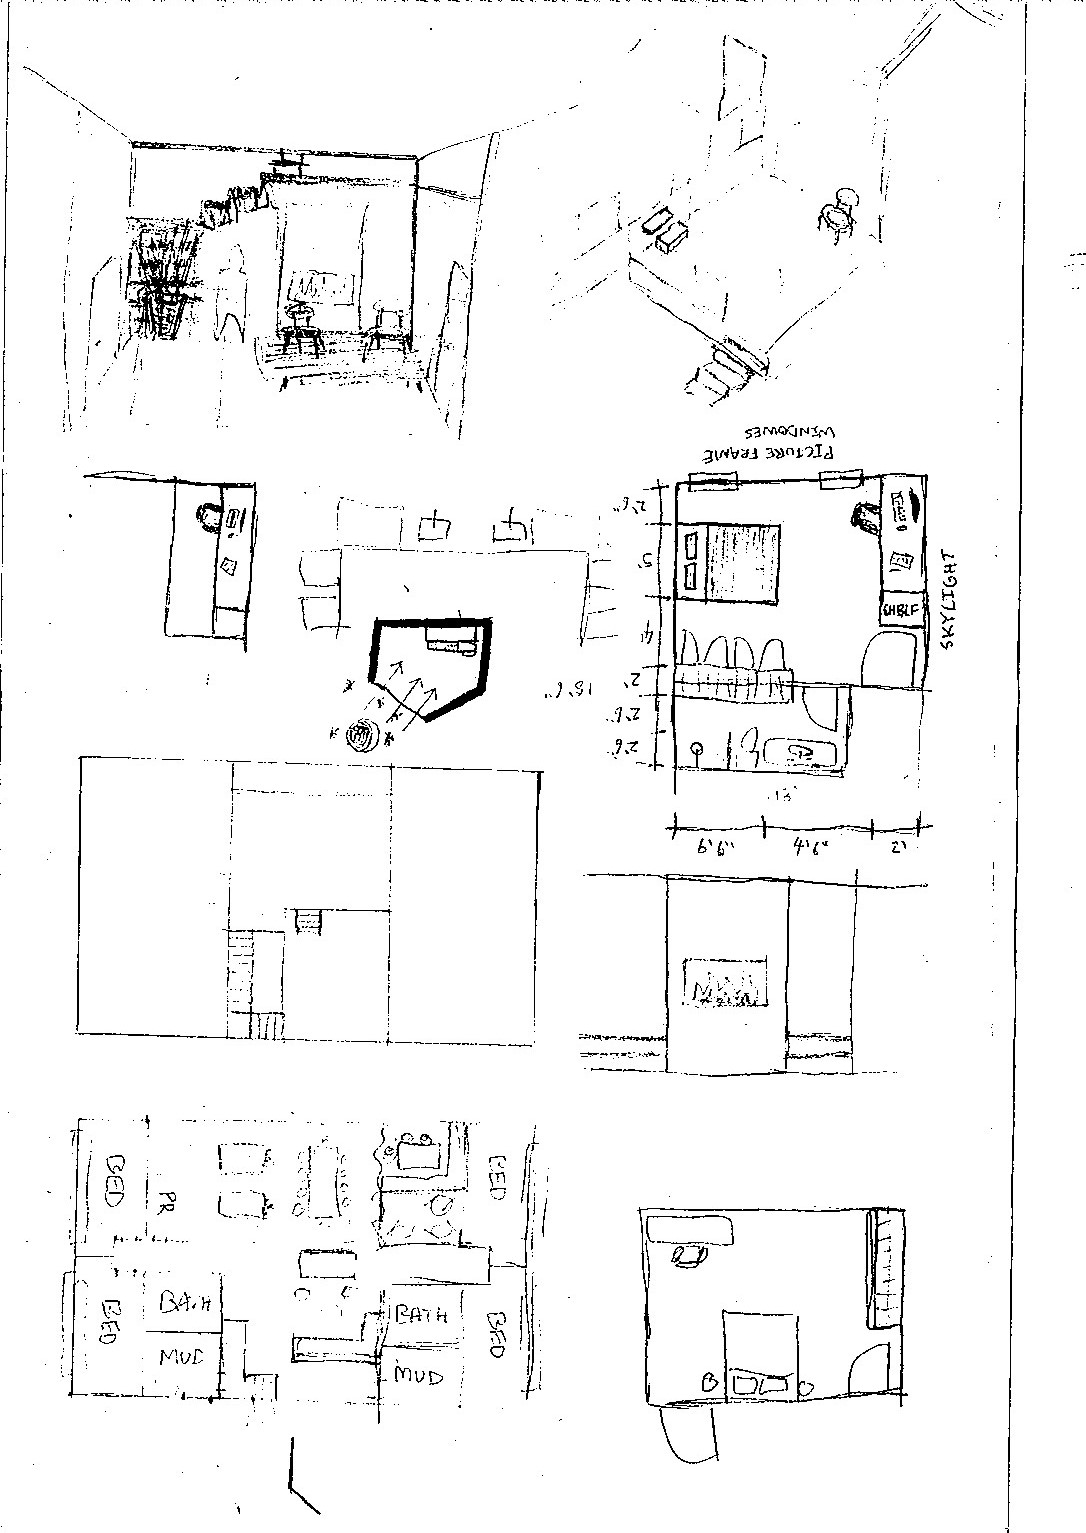 PICTURE FRAME
WINDOWES
2'6"
5'
4'
2'
2'6"
2'6"
18'6"
SHELF
SKYLIGHT
13'
6'6"
4'6"
2'
BED
PR
BED
BED
BATH
MUD
BATH
MUD
BED